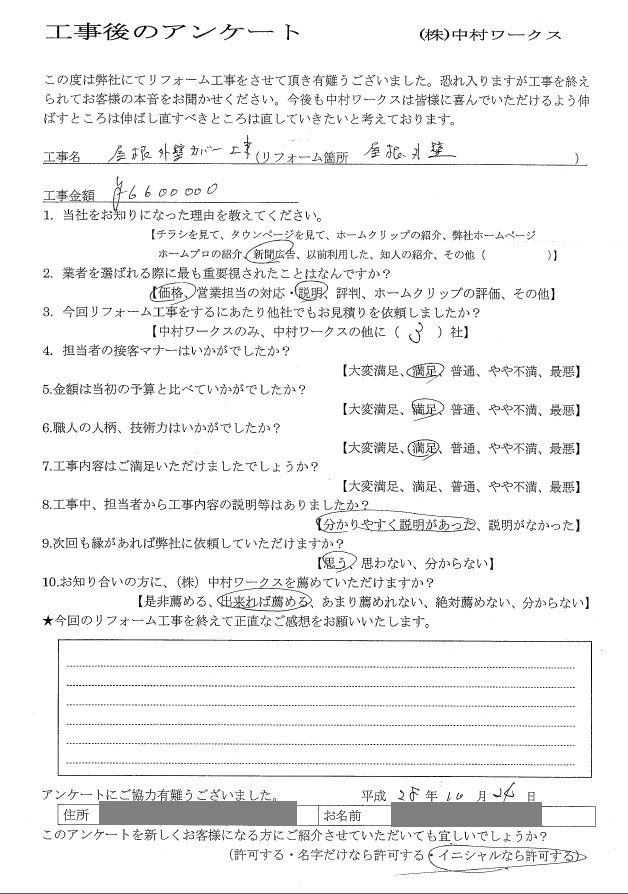 工事後のアンケート　(株)中村ワークス
この度は弊社にてリフォーム工事をさせて頂き有難うございました。恐れ入りますが工事を終え
られてお客様の本音をお聞かせください。今後も中村ワークスは皆様に喜んでいただけるよう伸
ばすところは伸ばし直すべきところは直していきたいと考えております。
工事名　屋根外壁カバー工事(リフォーム箇所　屋根、外壁　)
工事金額　¥6600000
1. 当社をお知りになった理由を教えてください。
【チラシを見て、タウンページを見て、ホームクリップの紹介、弊社ホームページ
ホームプロの紹介、新聞広告、以前利用した、知人の紹介、その他（　　　）】
2. 業者を選ばれる際に最も重要視されたことはなんですか？
【価格、営業担当の対応・説明、評判、ホームクリップの評価、その他】
3. 今回リフォーム工事をするにあたり他社でもお見積りを依頼しましたか？
【中村ワークスのみ、中村ワークスの他に（　3　）社】
4. 担当者の接客マナーはいかがでしたか？
【大変満足、満足、普通、やや不満、最悪】
5.金額は当初の予算と比べていかがでしたか？
【大変満足、満足、普通、やや不満、最悪】
6.職人の人柄、技術力はいかがでしたか？
【大変満足、満足、普通、やや不満、最悪】
7.工事内容はご満足いただけましたでしょうか？
【大変満足、満足、普通、やや不満、最悪】
8.工事中、担当者から工事内容の説明等はありましたか？
【分かりやすく説明があった、説明がなかった】
9.次回も縁があれば弊社に依頼していただけますか？
【思う、思わない、分からない】
10.お知り合いの方に、（株）中村ワークスを薦めていただけますか？
【是非薦める、出来れば薦める、あまり薦めれない、絶対薦めない、分からない】
★今回のリフォーム工事を終えて正直なご感想をお願いいたします。
アンケートにご協力有難うございました。　平成 28 年 10 月 24 日
住所　お名前
このアンケートを新しくお客様になる方にご紹介させていただいても宜しいでしょうか？
（許可する・名字だけなら許可する・イニシャルなら許可する）